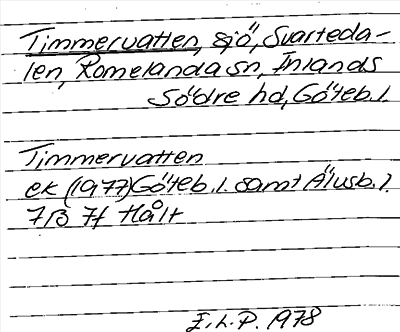 Timmervatten, sjö, Svarteda-
len, Romelanda sn, Inlands
Södre hd, Göteb.l.
Timmervatten
ek (1977) Göteb.l. samt Älvsb.l.
7B 7f Hålt
E.L.P. 1978